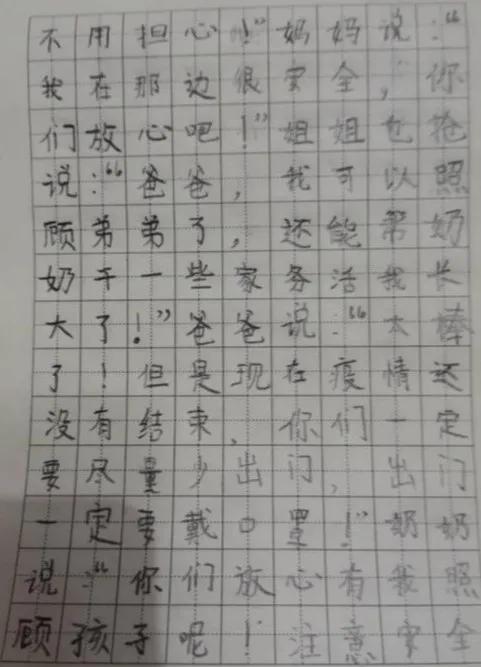 不用担心！”妈妈说：“
我在那边很安全，你
们放心吧！”姐姐也抢
说：“爸爸，我可以照
顾弟弟了，还能帮奶
奶干一些家务活我长
大了！”爸爸说：“太棒
了！但是现在疫情还
没有结束，你们一定
要尽量少出门，出门
一定要戴口罩！”奶奶
说：“你们放心有我照
顾孩子呢！注意安全